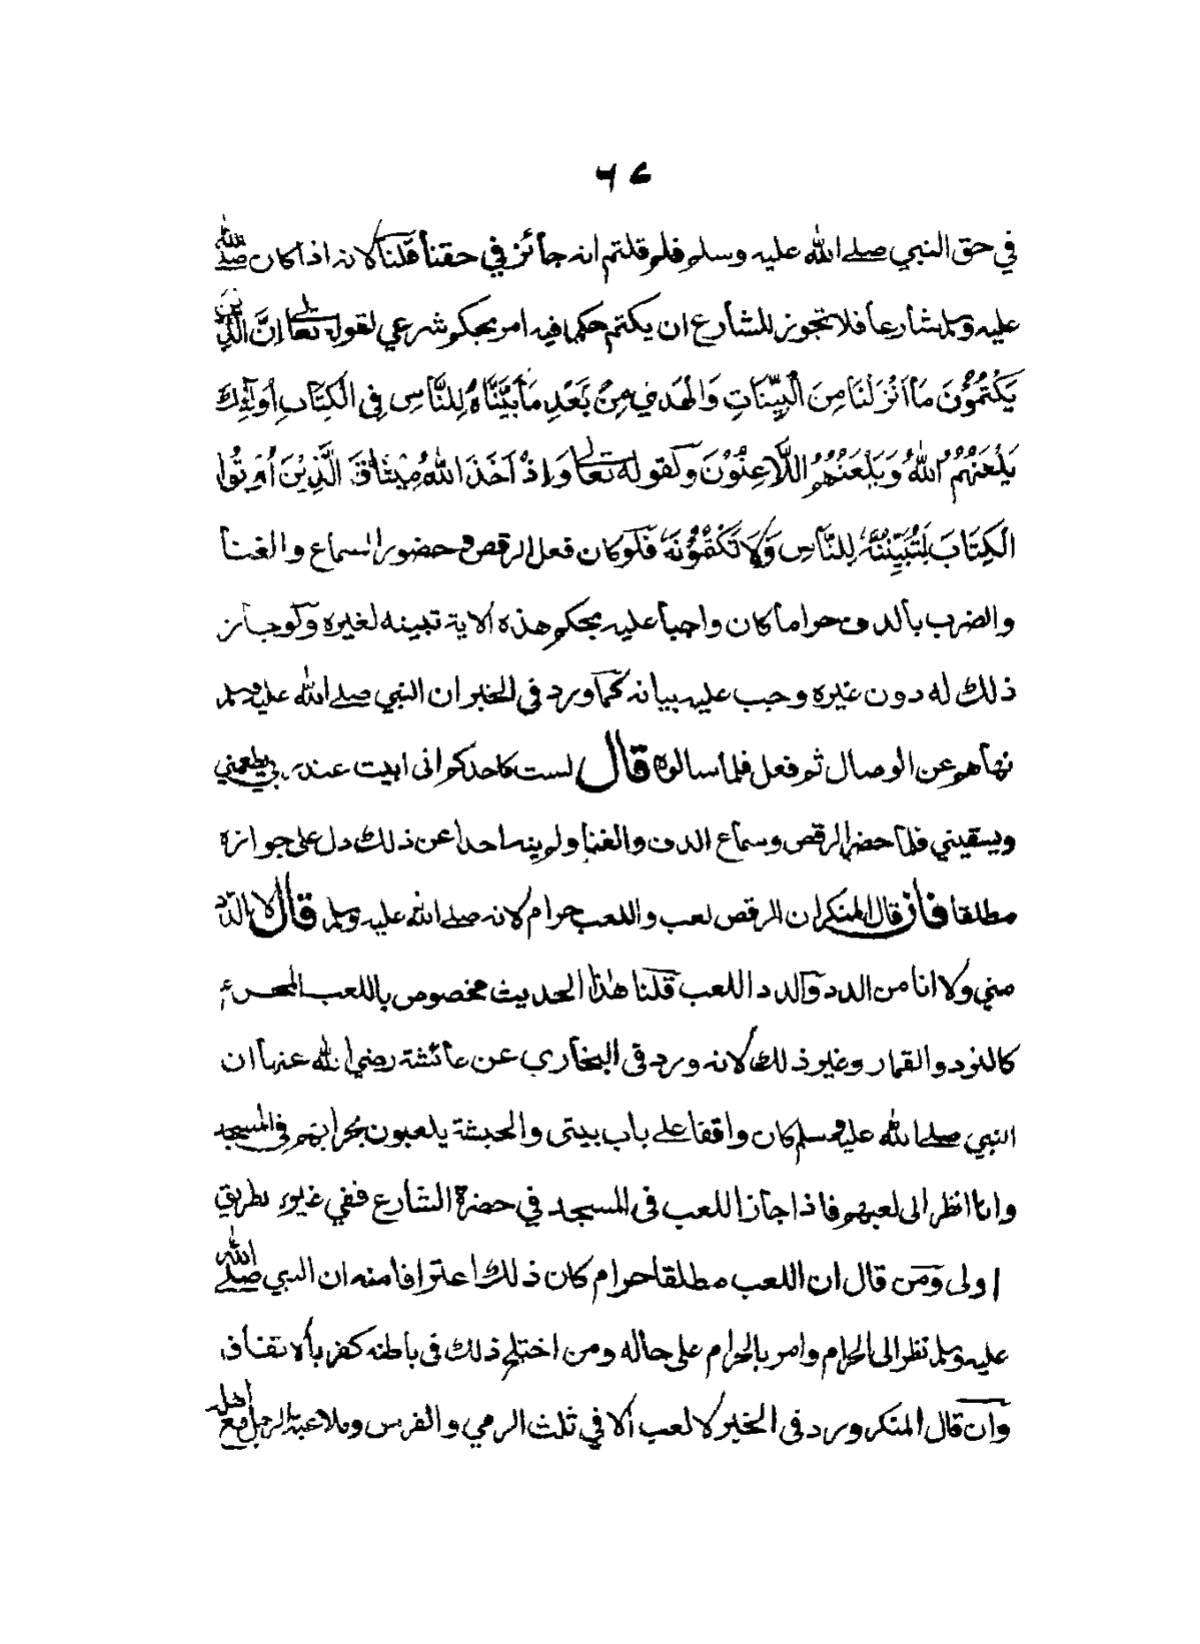 ٦٤
في حق النبي صلى الله عليه وسلم فلم قلتم انه جائز في حقنا قلنا لانه اذا كان صلى الله
عليه وسلم شارعا فلا تجوز للشارع ان يكتم حكما فيه امر بحكم شرعي لقوله تعالى اِنَّ الَّذِيْنَ
يَكْتُمُوْنَ مَا اَنْزَلْنَا مِنَ الْبَيِّنَاتِ وَالْهُدٰى مِنْ بَعْدِ مَا بَيَّنَّاهُ لِلنَّاسِ فِى الْكِتَابِ اُولٰٓئِكَ
يَلْعَنُهُمُ اللّٰهُ وَيَلْعَنُهُمُ اللَّاعِنُوْنَ وكقوله تعالى وَاِذْ اَخَذَ اللّٰهُ مِيْثَاقَ الَّذِيْنَ اُوْتُوا
الْكِتَابَ لَتُبَيِّنُنَّهٗ لِلنَّاسِ وَلَا تَكْتُمُوْنَهٗ فلو كان فعل الرقص وحضور السماع والغنا
والضرب بالدف حراما كان واجبا عليه بحكم هذه الاية تبينه لغيره ولو جاز
ذلك له دون غيره وجب عليه بيانه كما ورد فى الخبر ان النبي صلى الله عليه وسلم
نهاهم عن الوصال ثم فعل فلما سالوه قال لست كاحدكم انى ابيت عند ربي يطعمني
ويسقيني فلما حضر الرقص وسماع الدف والغنا ولم ينه احدا عن ذلك دل على جوازه
مطلقا فان قال المنكر ان الرقص لعب واللعب حرام لانه صلى الله عليه وسلم قال لا الدد
مني ولا انا من الدد والدد اللعب قلنا هذا الحديث مخصوص باللعب المحرم
كالنرد والقمار وغير ذلك لانه ورد فى البخاري عن عائشة رضي الله عنها ان
النبي صلى الله عليه وسلم كان واقفا على باب بيتى والحبشة يلعبون بحرابهم فى المسجد
وانا انظر الى لعبهم فاذا جاز اللعب فى المسجد في حضرة الشارع ففي غيره بطريق
اولى ومن قال ان اللعب مطلقا حرام كان ذلك اعترافا منه ان النبي صلى الله
عليه وسلم نظر الى الحرام وامر بالحرام على حاله ومن اختلج ذلك فى باطنه كفر بالاتفاق
وان قال المنكر ورد فى الخبر لا لعب الا في ثلث الرمي والفرس وملاعبة الرجل مع اهله